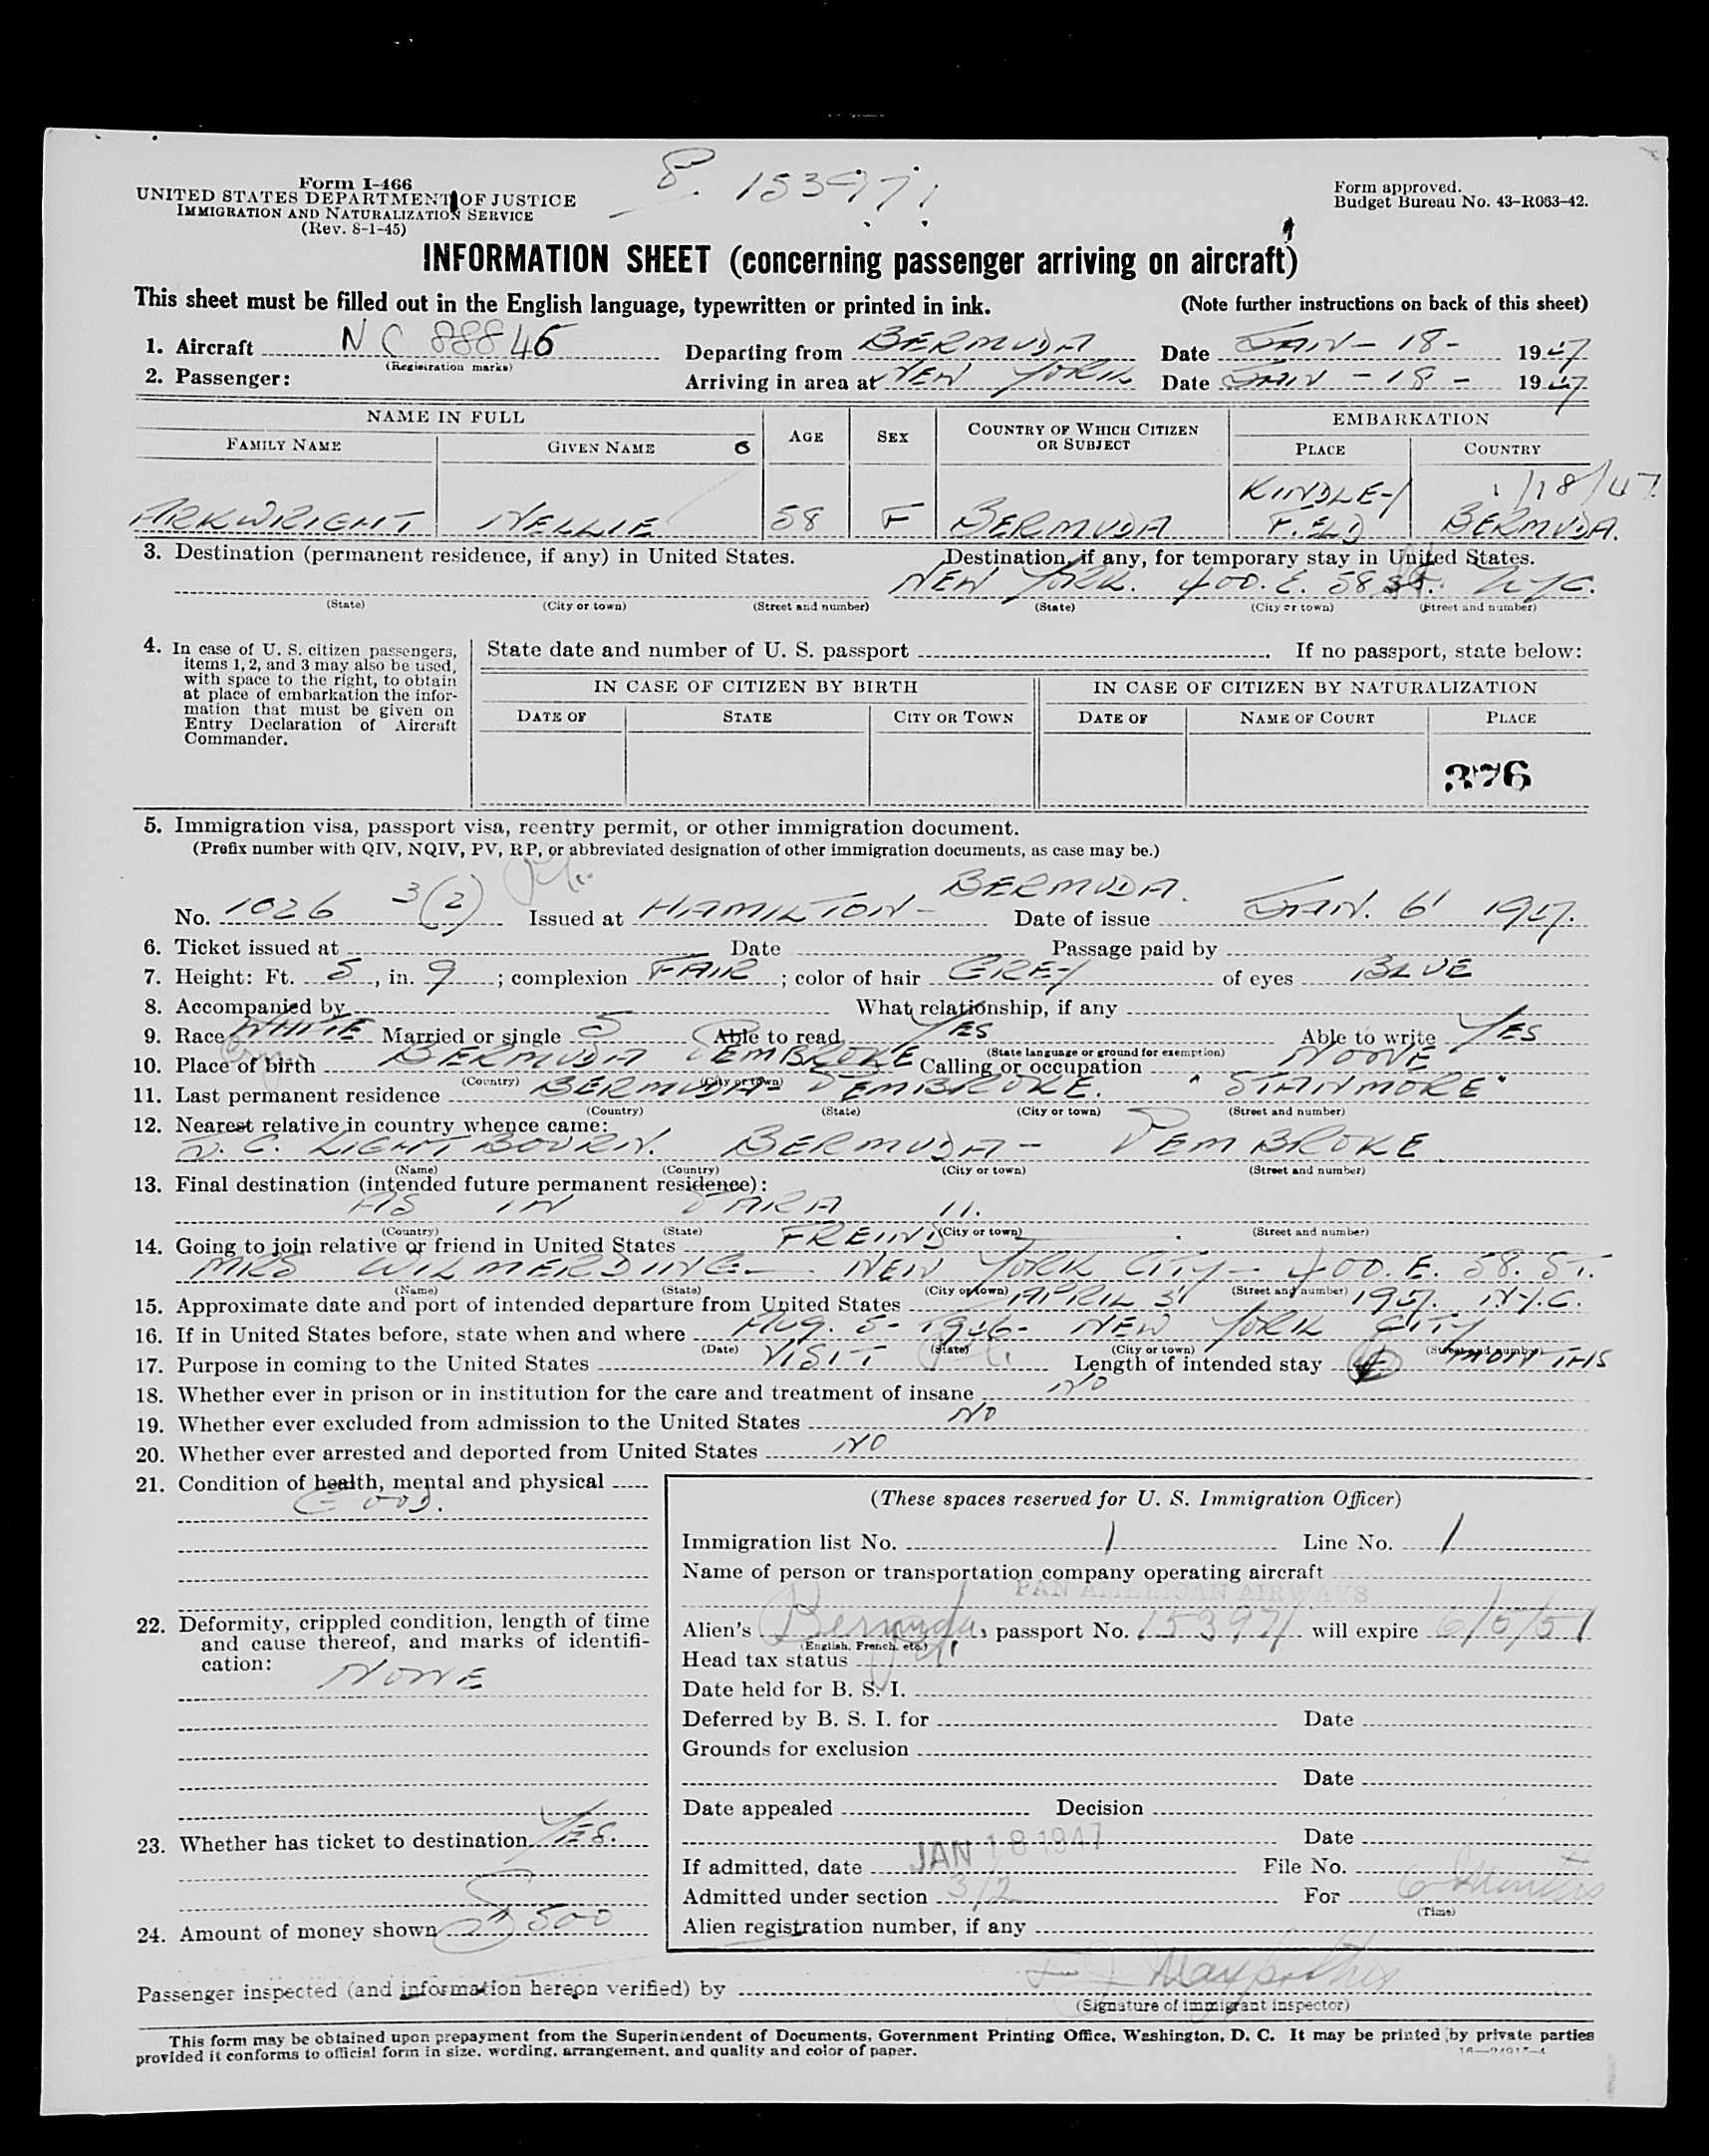 8. 15397
Form I-466
UNITED STATES DEPARTMENT OF JUSTICE
IMMIGRATION AND NATURALIZATION SERVICE
(Rev. 8-1-45)
Form approved.
Budget Bureau No. 43-R063-42.
INFORMATION SHEET (concerning passenger arriving on aircraft)
This sheet must be filled out in the English language, typewritten or printed in ink. (Note further instructions on back of this sheet)
1. Aircraft NC 88846 Departing from BERMUDA Date JAN-18- 1947
(Registration marks)
2. Passenger: Arriving in area at NEW YORK Date JAN-18- 1947
NAME IN FULL AGE SEX COUNTRY OF WHICH CITIZEN OR SUBJECT EMBARKATION
FAMILY NAME GIVEN NAME PLACE COUNTRY
KINDLEY 1/18/47
ARKWRIGHT NELLIE 58 F BERMUDA FIELD BERMUDA.
3. Destination (permanent residence, if any) in United States. Destination, if any, for temporary stay in United States.
NEW YORK. 400. E. 58 ST. NYC.
(State) (City or town) (Street and number) (State) (City or town) (Street and number)
4. In case of U. S. citizen passengers, items 1, 2, and 3 may also be used, with space to the right, to obtain at place of embarkation the information that must be given on Entry Declaration of Aircraft Commander.
State date and number of U. S. passport If no passport, state below:
IN CASE OF CITIZEN BY BIRTH IN CASE OF CITIZEN BY NATURALIZATION
DATE OF STATE CITY OR TOWN DATE OF NAME OF COURT PLACE
376
5. Immigration visa, passport visa, reentry permit, or other immigration document.
(Prefix number with QIV, NQIV, PV, RP, or abbreviated designation of other immigration documents, as case may be.)
No. 1026 3(2) Issued at HAMILTON- BERMUDA. Date of issue JAN. 6' 1947.
6. Ticket issued at Date Passage paid by
7. Height: Ft. 5, in. 9; complexion FAIR; color of hair GREY of eyes BLUE
8. Accompanied by What relationship, if any
9. Race WHITE Married or single S Able to read YES Able to write YES
(State language or ground for exemption)
10. Place of birth BERMUDA PEMBROKE Calling or occupation NONE
(Country) (City or town)
11. Last permanent residence BERMUDA- PEMBROKE. "STANMORE"
(Country) (State) (City or town) (Street and number)
12. Nearest relative in country whence came:
D. C. LIGHTBOURN. BERMUDA- PEMBROKE.
(Name) (Country) (City or town) (Street and number)
13. Final destination (intended future permanent residence):
AS IN PARA 11.
(Country) (State) (City or town) (Street and number)
14. Going to join relative or friend in United States FREIND
MRS WILMERDING- NEW YORK CITY- 400. E. 58. ST.
(Name) (State) (City or town) (Street and number)
15. Approximate date and port of intended departure from United States APRIL 3' 1947. N.Y.C.
16. If in United States before, state when and where Aug. 5- 1946- NEW YORK CITY
(Date) (State) (City or town) (Street and number)
17. Purpose in coming to the United States VISIT Length of intended stay MONTHS
18. Whether ever in prison or in institution for the care and treatment of insane NO
19. Whether ever excluded from admission to the United States NO
20. Whether ever arrested and deported from United States NO
21. Condition of health, mental and physical
GOOD.
22. Deformity, crippled condition, length of time and cause thereof, and marks of identification:
NONE
23. Whether has ticket to destination YES.
24. Amount of money shown 500
(These spaces reserved for U. S. Immigration Officer)
Immigration list No. 1 Line No. 1
Name of person or transportation company operating aircraft
PAN AMERICAN AIRWAYS
Alien's Bermuda, passport No. 15397 will expire 6/5/51
(English, French, etc.)
Head tax status
Date held for B. S. I.
Deferred by B. S. I. for Date
Grounds for exclusion
Date
Date appealed Decision
Date
If admitted, date JAN 18 1947 File No.
Admitted under section 3/2 For 6 Months
(Time)
Alien registration number, if any
Passenger inspected (and information hereon verified) by
(Signature of immigrant inspector)
This form may be obtained upon prepayment from the Superintendent of Documents, Government Printing Office, Washington, D. C. It may be printed by private parties
provided it conforms to official form in size, wording, arrangement, and quality and color of paper.